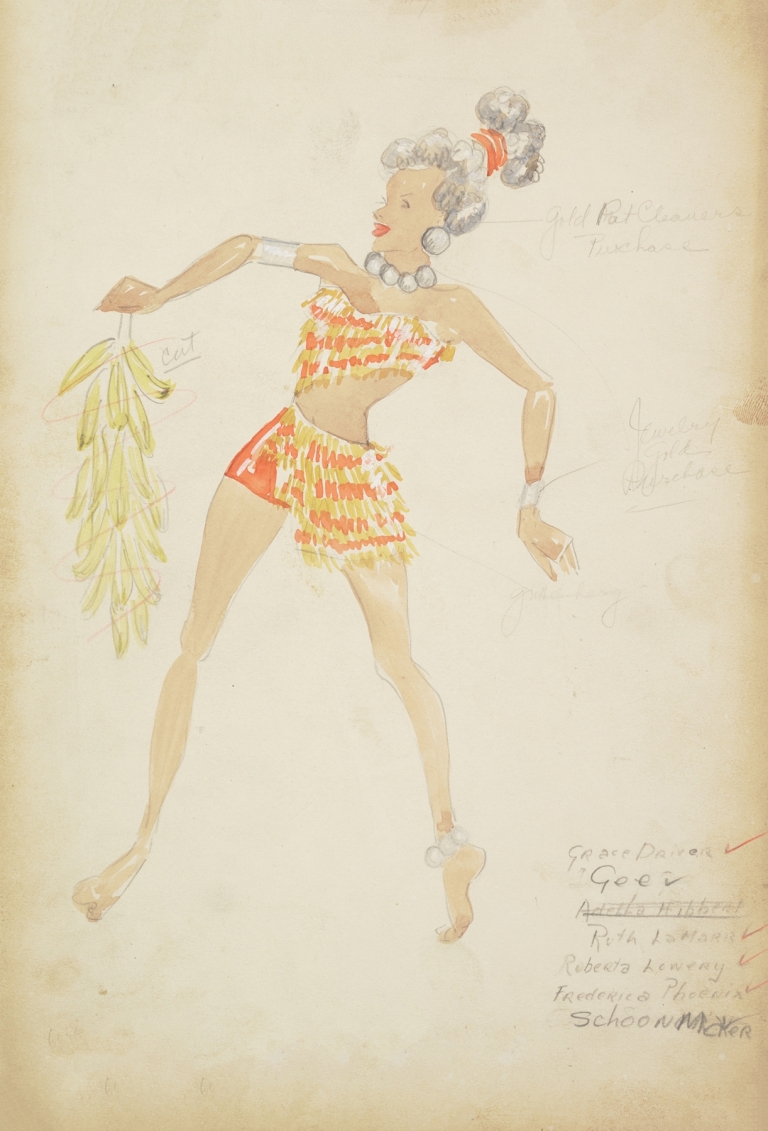 Gold Pot Cleaners
Purchase
cut
Jewelry
Gold
Purchase
Grace Driver
Goe
Adella Hibbert
Ruth LaMarr
Roberta Lowery
Frederica Phoenix
Schoon